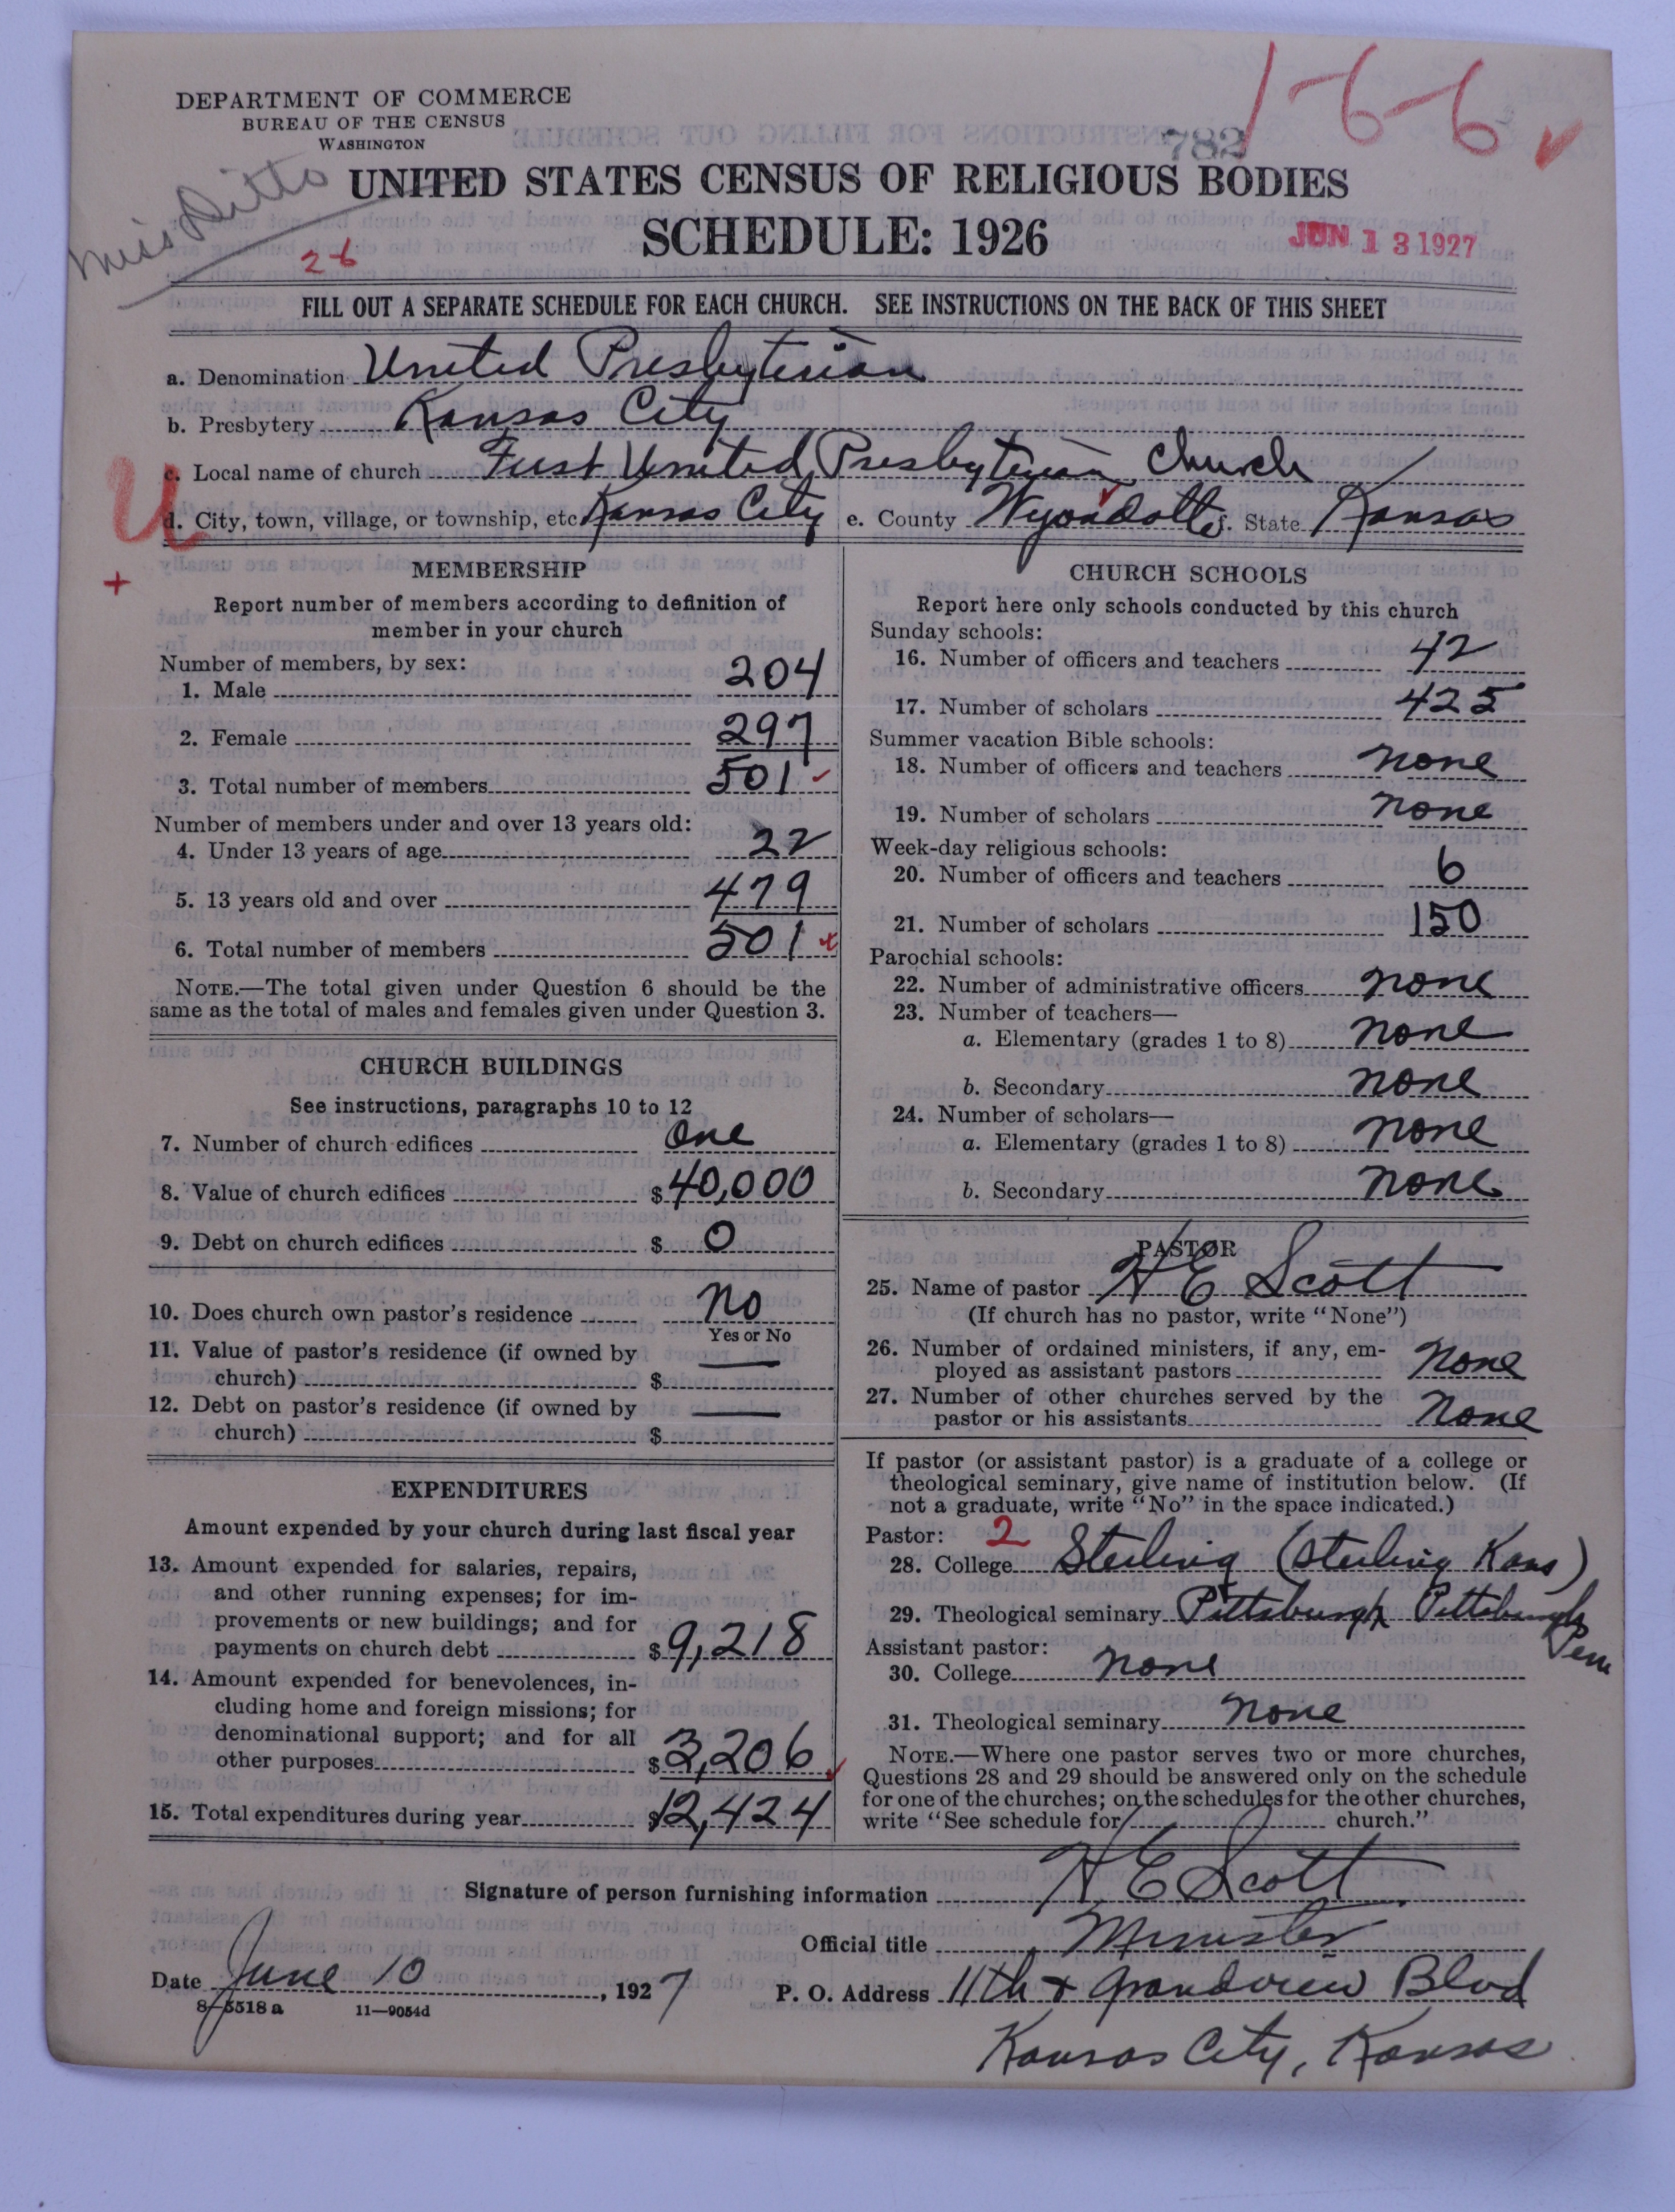 1-6-6 ✓
DEPARTMENT OF COMMERCE
BUREAU OF THE CENSUS
WASHINGTON
782
Miss Ditto
UNITED STATES CENSUS OF RELIGIOUS BODIES
SCHEDULE: 1926
JUN 13 1927
26
FILL OUT A SEPARATE SCHEDULE FOR EACH CHURCH. SEE INSTRUCTIONS ON THE BACK OF THIS SHEET
a. Denomination United Presbyterian
b. Presbytery Kansas City
c. Local name of church First United Presbyterian Church
U
d. City, town, village, or township, etc. Kansas City e. County Wyandotte f. State Kansas
MEMBERSHIP
Report number of members according to definition of
member in your church
Number of members, by sex:
1. Male 204
2. Female 297
3. Total number of members 501
Number of members under and over 13 years old:
4. Under 13 years of age 22
5. 13 years old and over 479
6. Total number of members 501
NOTE.—The total given under Question 6 should be the
same as the total of males and females given under Question 3.
CHURCH BUILDINGS
See instructions, paragraphs 10 to 12
7. Number of church edifices One
8. Value of church edifices $40,000
9. Debt on church edifices $ 0
10. Does church own pastor's residence No
Yes or No
11. Value of pastor's residence (if owned by
church) $ —
12. Debt on pastor's residence (if owned by
church) $ —
EXPENDITURES
Amount expended by your church during last fiscal year
13. Amount expended for salaries, repairs,
and other running expenses; for im-
provements or new buildings; and for
payments on church debt $9,218
14. Amount expended for benevolences, in-
cluding home and foreign missions; for
denominational support; and for all
other purposes $3,206
15. Total expenditures during year $12,424
CHURCH SCHOOLS
Report here only schools conducted by this church
Sunday schools:
16. Number of officers and teachers 42
17. Number of scholars 425
Summer vacation Bible schools:
18. Number of officers and teachers none
19. Number of scholars none
Week-day religious schools:
20. Number of officers and teachers 6
21. Number of scholars 150
Parochial schools:
22. Number of administrative officers none
23. Number of teachers—
a. Elementary (grades 1 to 8) none
b. Secondary none
24. Number of scholars—
a. Elementary (grades 1 to 8) none
b. Secondary none
PASTOR
25. Name of pastor H E Scott
(If church has no pastor, write "None")
26. Number of ordained ministers, if any, em-
ployed as assistant pastors none
27. Number of other churches served by the
pastor or his assistants none
If pastor (or assistant pastor) is a graduate of a college or
theological seminary, give name of institution below. (If
not a graduate, write "No" in the space indicated.)
Pastor: 2
28. College Sterling (Sterling Kans)
29. Theological seminary Pittsburgh Pittsburgh
Penn
Assistant pastor:
30. College none
31. Theological seminary none
NOTE.—Where one pastor serves two or more churches,
Questions 28 and 29 should be answered only on the schedule
for one of the churches; on the schedules for the other churches,
write "See schedule for church."
Signature of person furnishing information H E Scott
Official title Minister
Date June 10, 1927 P. O. Address 11th & Grandview Blvd
8—5518 a 11—9054d
Kansas City, Kansas